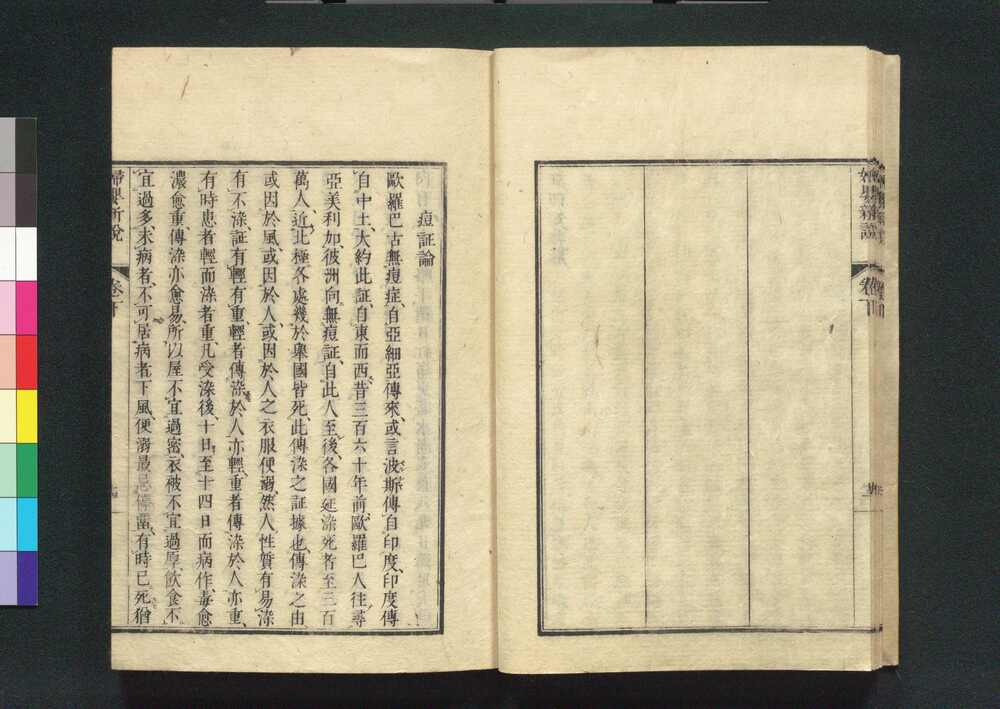 婦嬰新說
痘証論
歐羅巴古無痘症、自亞細亞傳來、或言波斯傳自印度、印度傳
自中土、大約此証、自東而西、昔三百六十年前、歐羅巴人往尋
亞美利加、彼洲向無痘証、自此人至後、各國延染、死者至三百
萬人、近北極各處、幾於舉國皆死、此傳染之証據也、傳染之由
或因於風、或因於人、或因於人之衣服便溺、然人性質有易染
有不染、証有輕有重、輕者傳染於人亦輕、重者傳染於人亦重、
有時患者輕而染者重、凡受染後、十日至十四日而病作、毒愈
濃愈重、傳染亦愈易、所以屋不宜過密、衣被不宜過厚、飲食不
宜過多、未病者、不可居病者下風、便溺最忌停留、有時已死猶
婦嬰新說
卷下